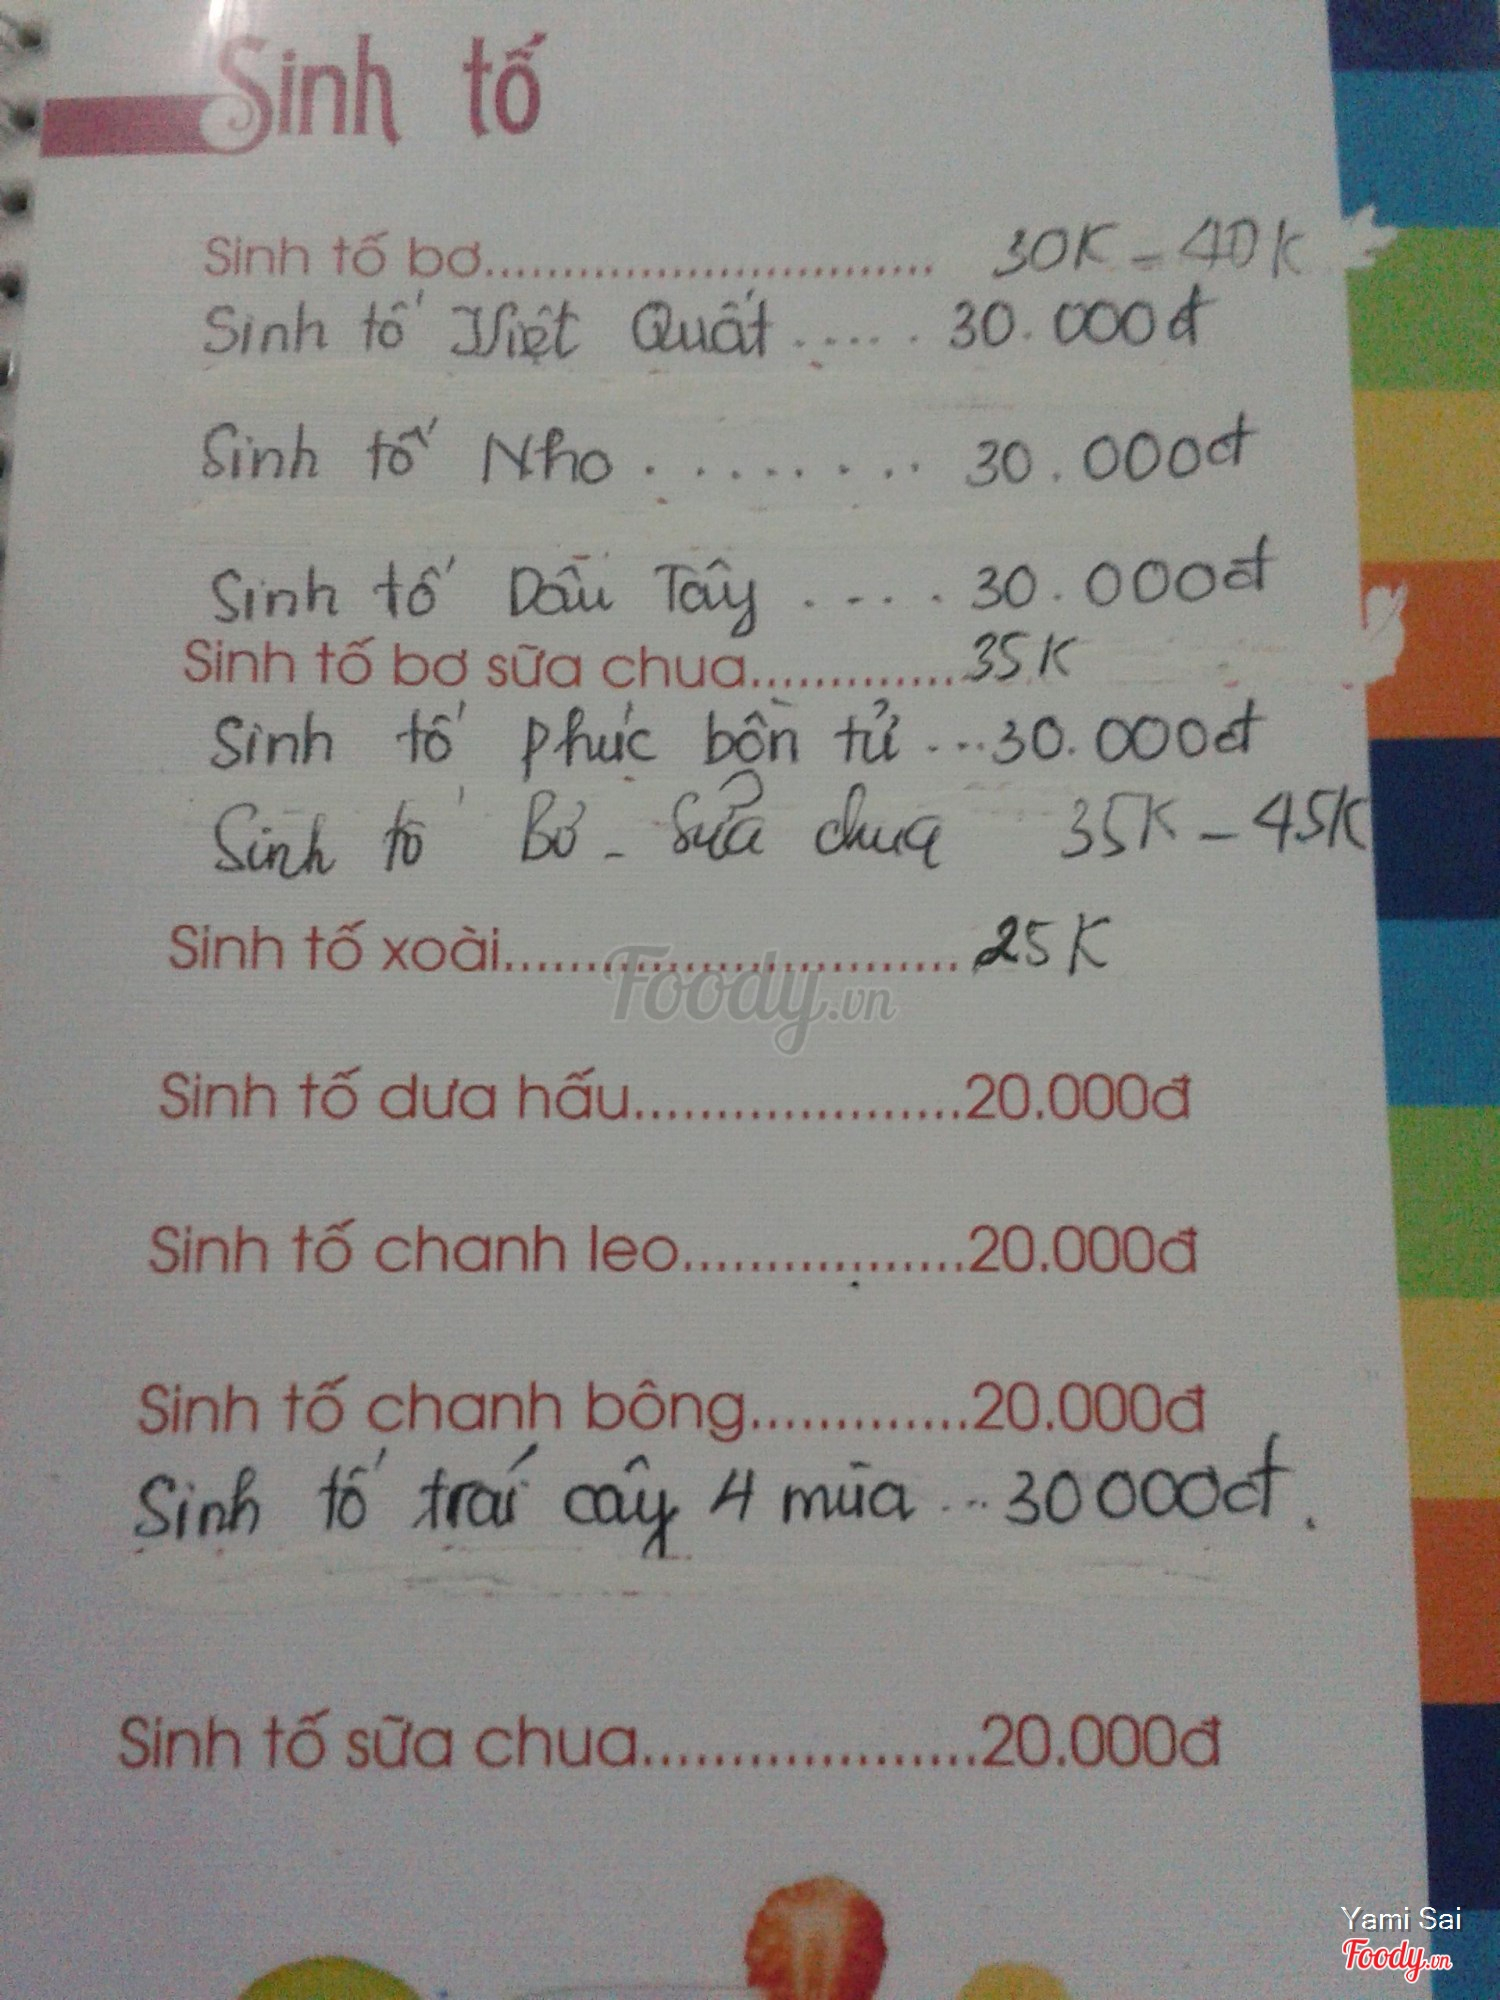 Sinh tố
Sinh tố bơ.............................. 30K - 40K
Sinh tố Việt Quất ..... 30.000đ
Sinh tố Nho ......... 30.000đ
Sinh tố Dâu Tây .... 30.000đ
Sinh tố bơ sữa chua.............35K
Sinh tố phúc bồn tử ...30.000đ
Sinh tố Bơ - Sữa chua 35K - 45K
Sinh tố xoài..............................25K
Sinh tố dưa hấu.....................20.000đ
Sinh tố chanh leo..................20.000đ
Sinh tố chanh bông..............20.000đ
Sinh tố trái cây 4 mùa ...30000đ.
Sinh tố sữa chua.....................20.000đ
Foody.vn
Yami Sai
Foody.vn